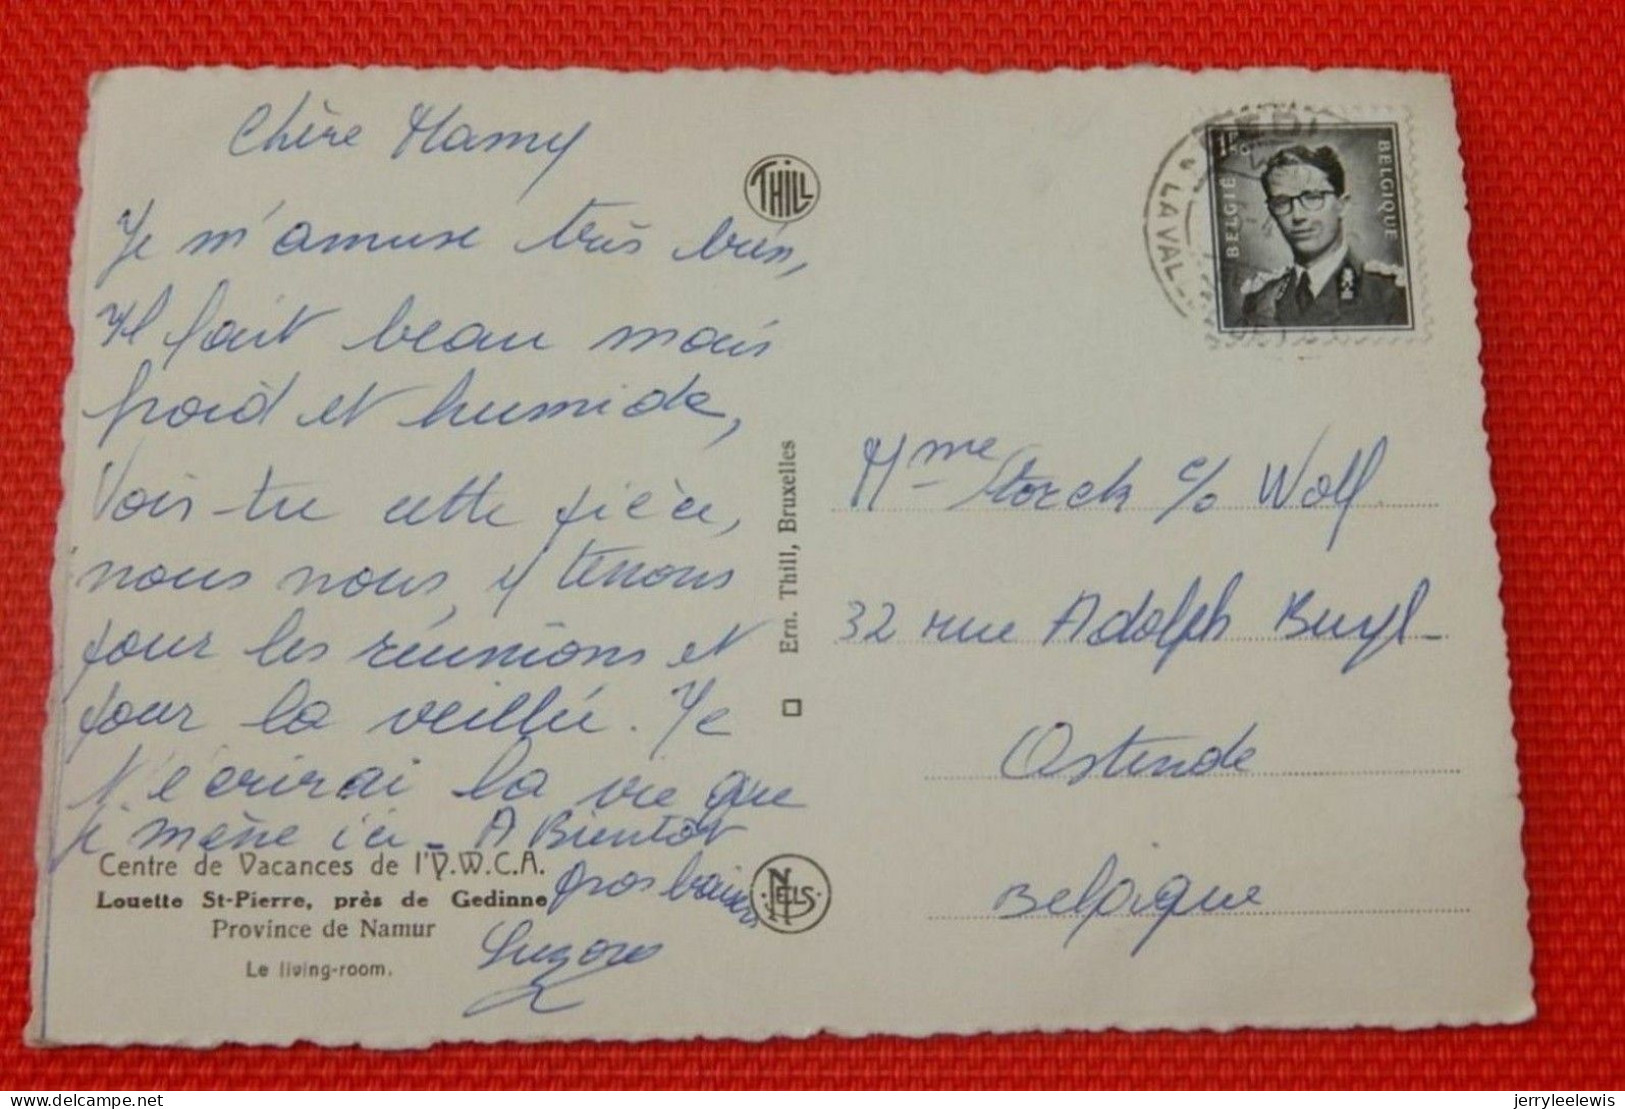 Chère Mamy
Je m'amuse très bien,
Il fait beau mais
froid et humide,
Vois-tu cette pièce,
nous nous y tenons
pour les réunions et
pour la veillée. Je
t'écrirai la vie que
je mène ici - A Bientôt
gros baisers
Centre de Vacances de l'Y.W.C.A.
Louette St-Pierre, près de Gedinne
Province de Namur
Le living-room.
THILL
Ern. Thill, Bruxelles
NELS
1F
BELGIË
BELGIQUE
LAVAL-
Mme Storck c/o Wolf
32 rue Adolph Buyl-
Ostende
Belgique
jerryleelewis